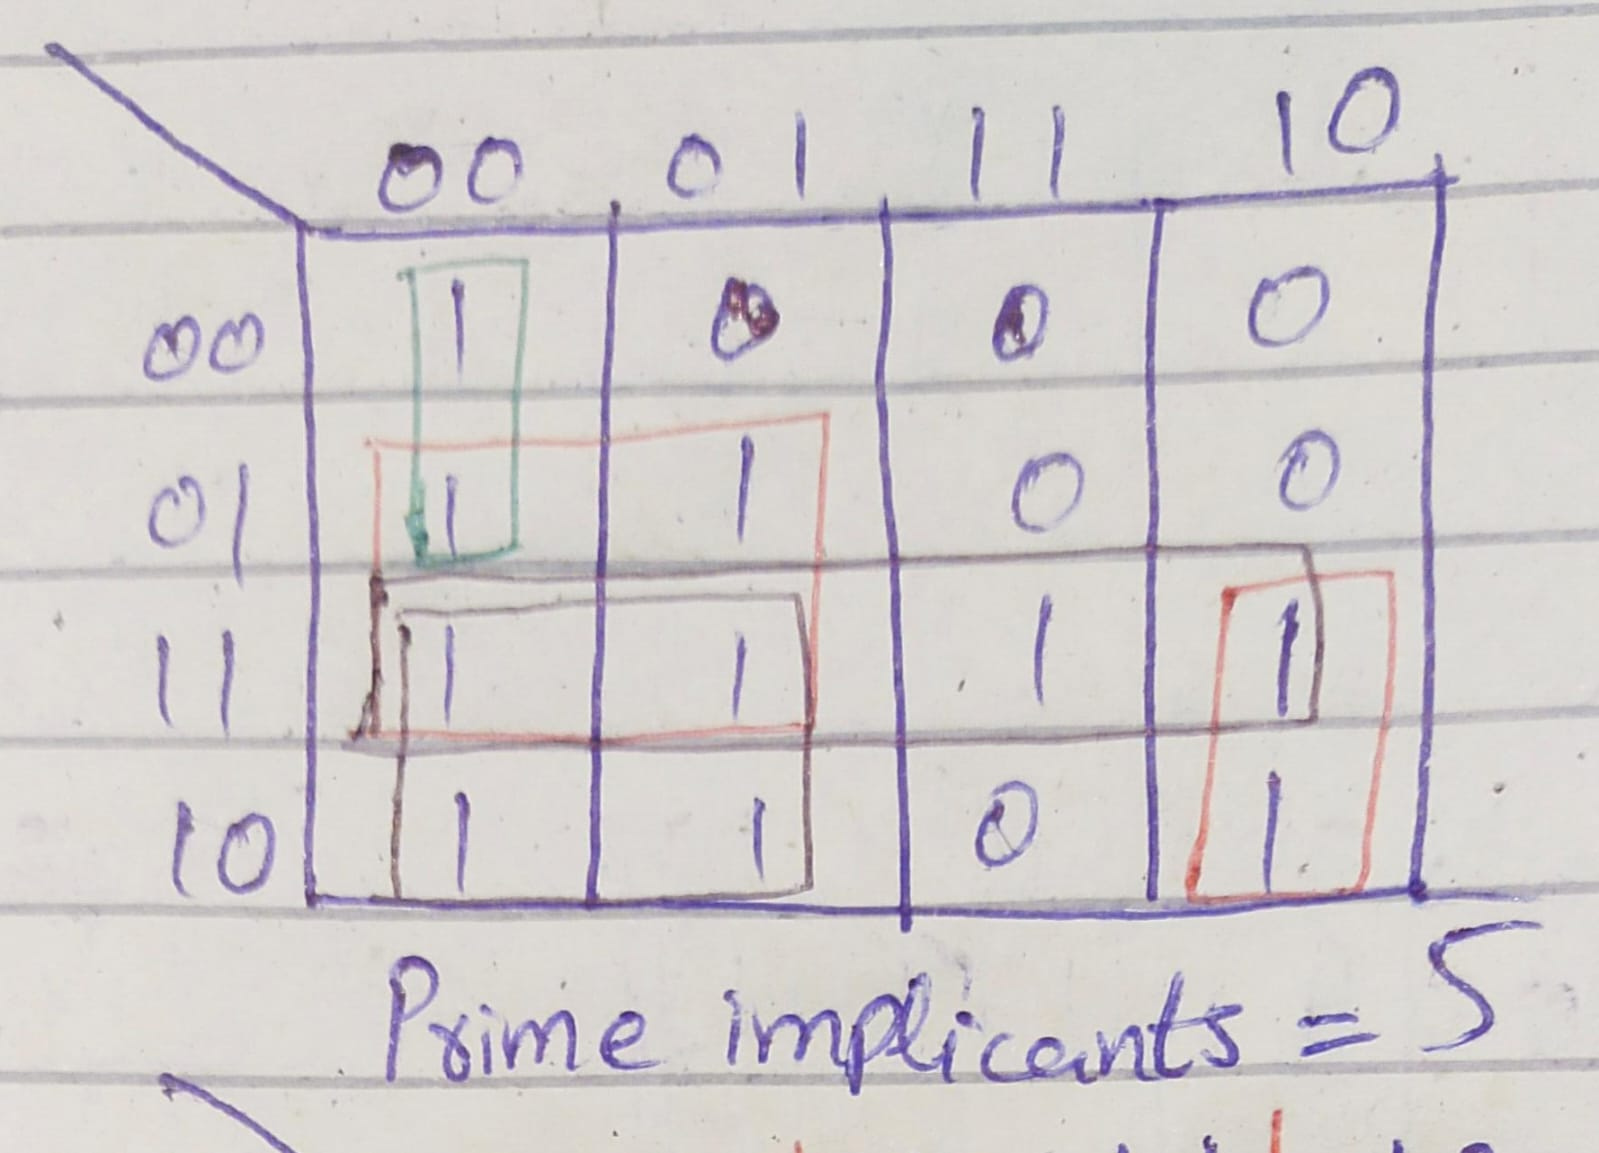 00 01 11 10
00 1 0 0 0
01 1 1 0 0
11 1 1 1 1
10 1 1 0 1
Prime implicants = 5